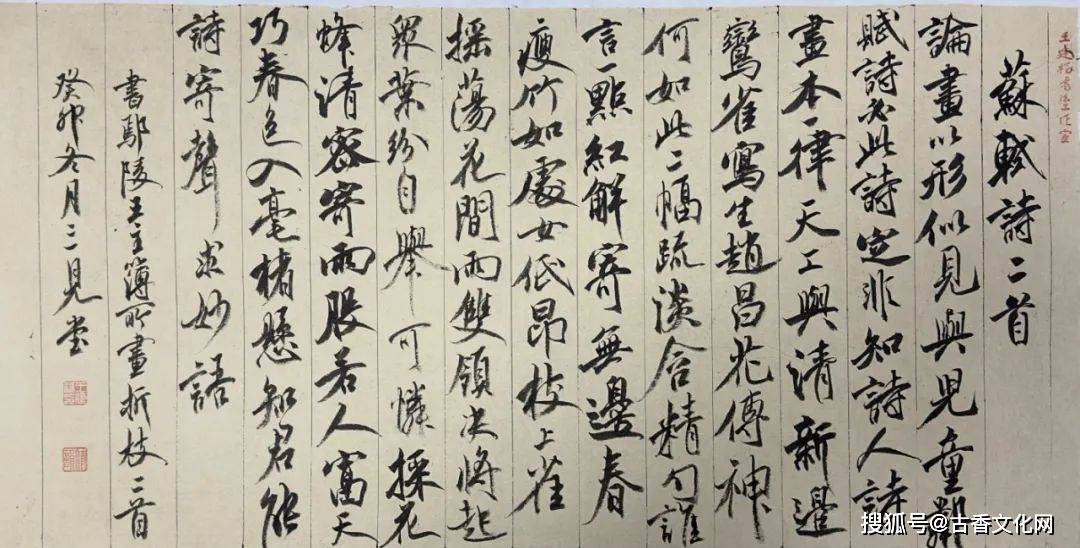 蘇軾詩二首
論畫以形似見與兒童鄰
賦詩必此詩定非知詩人詩
畫本一律天工與清新邊
鸞雀寫生趙昌花傳神
何如此二幅疏淡含精勻誰
言一點紅解寄無邊春
瘦竹如處女低昂枝上雀
搖蕩花間雨雙領決將起
眾葉紛自舉可憐採花
蜂清蜜寄兩股若人富天
巧春色入毫楮懸知君能
詩寄聲求妙語
書鄢陵王主簿所畫折枝二首
癸卯冬月二見堂
搜狐号@古香文化网